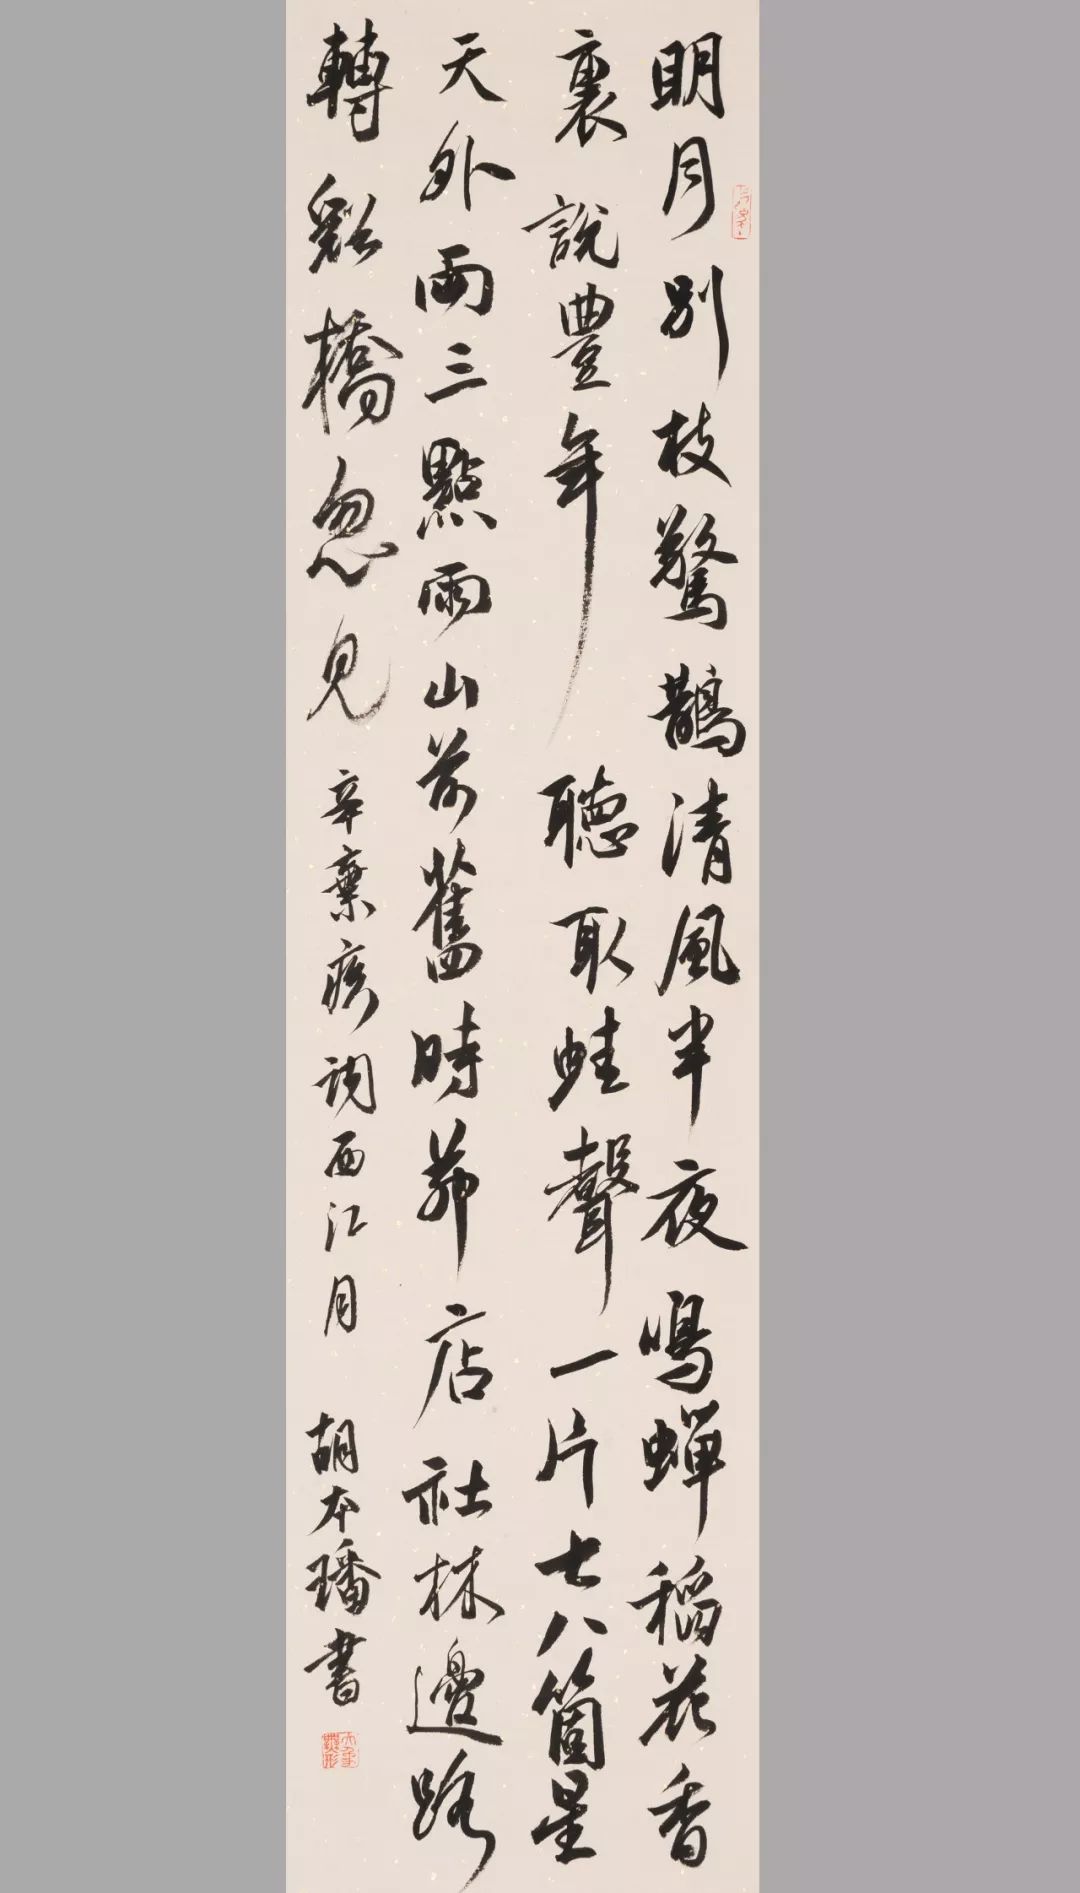 明月別枝驚鵲清風半夜鳴蟬稻花香
裏說豐年聽取蛙聲一片七八箇星
天外兩三點雨山前舊時茅店社林邊路
轉谿橋忽見辛棄疾詞西江月胡本璠書